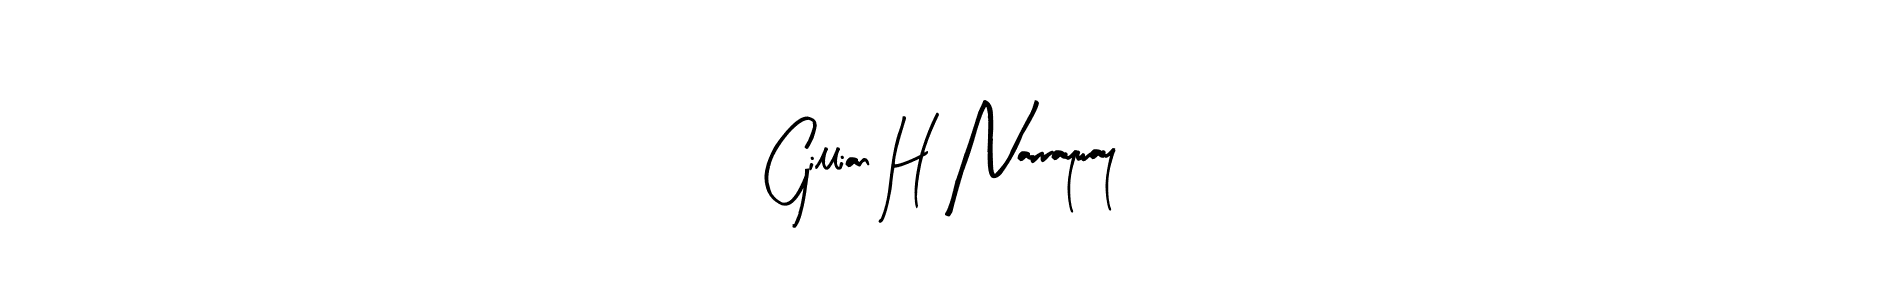 Gillian H Narrayway